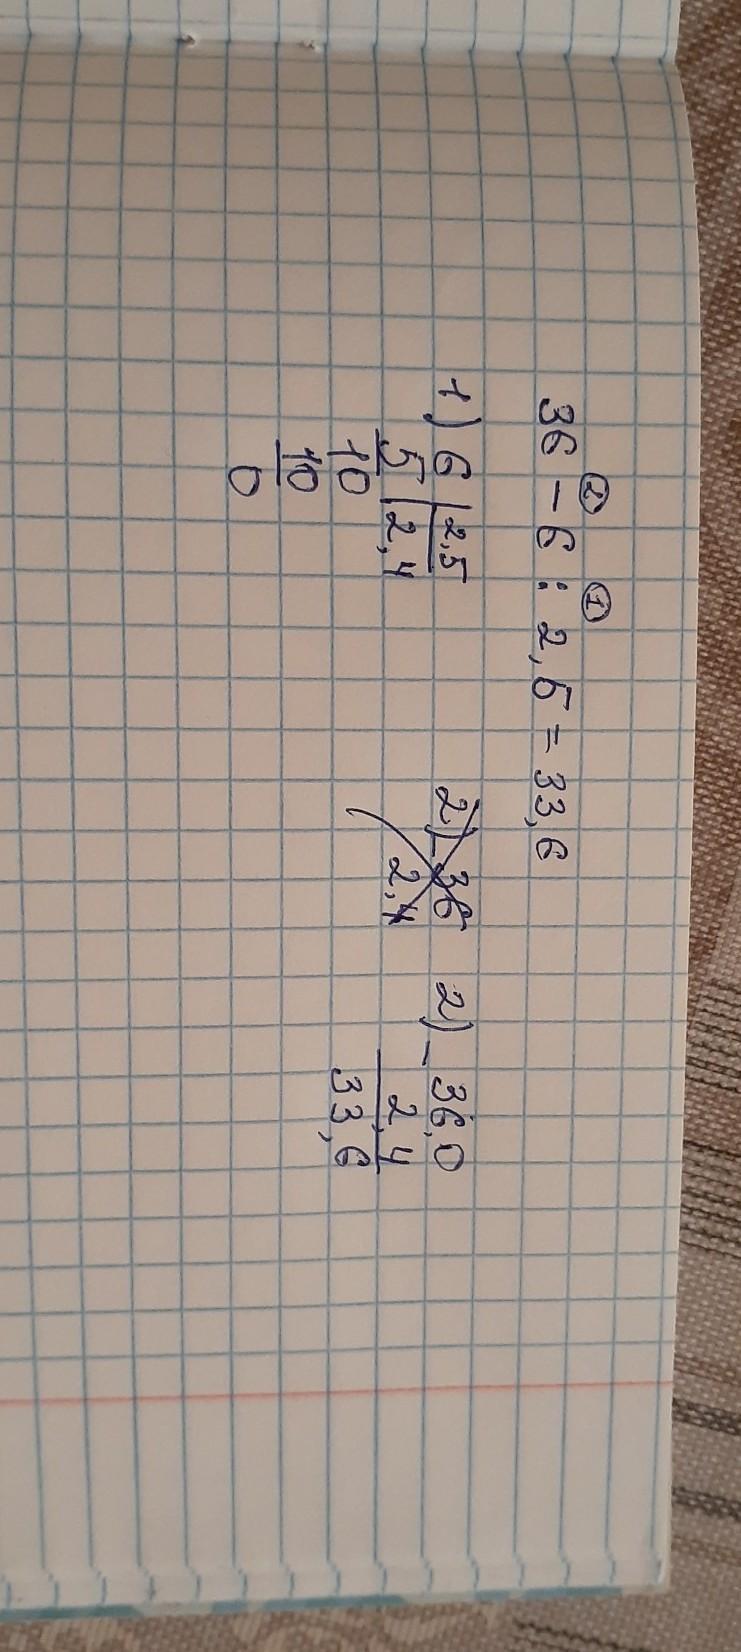 ② ①
36 - 6 : 2,5 = 33,6
1) 6 | 2,5
5 | 2,4
10
10
0
2) - 36
2,4
2) - 36,0
2,4
33,6